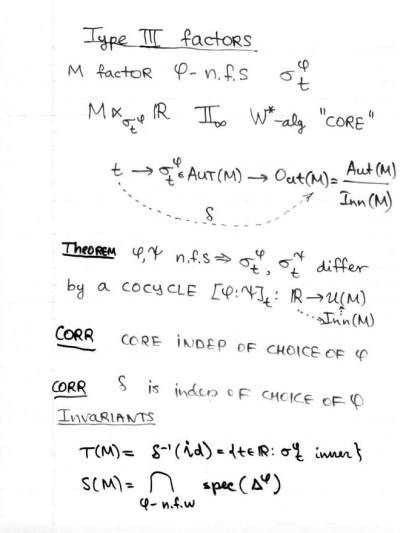 Type III factors
M factor φ-n.f.s σ_t^φ
M ⋊_{σ_t^φ} ℝ II_∞ W*-alg "CORE"
t → σ_t^φ ∈ AUT(M) → Out(M) = Aut(M)/Inn(M)
δ
THEOREM φ, ψ n.f.s ⇒ σ_t^φ, σ_t^ψ differ
by a COCYCLE [φ:ψ]_t : ℝ → U(M)
→ Inn(M)
CORR CORE INDEP OF CHOICE OF φ
CORR δ is indep OF CHOICE OF φ
INVARIANTS
T(M) = δ⁻¹(id) = {t ∈ ℝ : σ_t^φ inner}
S(M) = ⋂ spec(Δ^φ)
φ-n.f.w